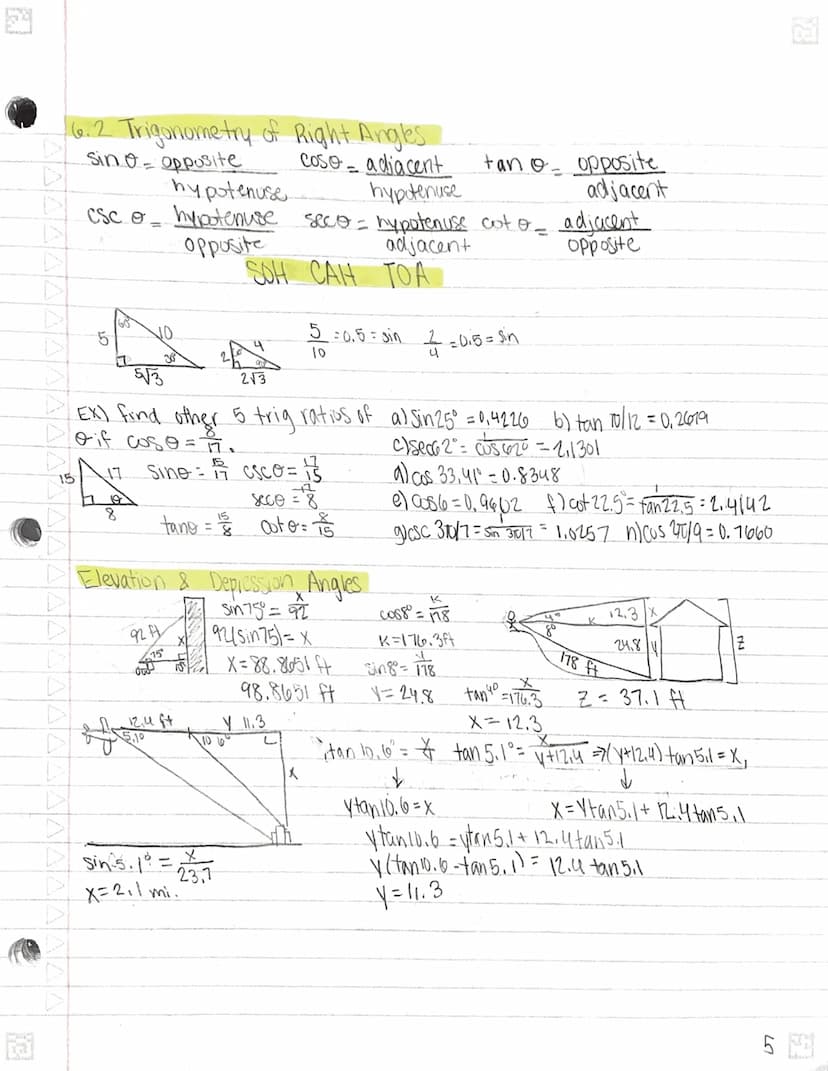 6.2 Trigonometry of Right Angles
sin θ = opposite/hypotenuse cos θ = adjacent/hypotenuse tan θ = opposite/adjacent
csc θ = hypotenuse/opposite sec θ = hypotenuse/adjacent cot θ = adjacent/opposite
SOH CAH TOA
5 60° 10 30° 5√3
2 4 2√3
5/10 = 0.5 = sin 2/4 = 0.5 = sin
EX) find other 5 trig ratios of
θ if cos θ = 8/17.
15 17 θ 8
sin θ = 15/17 csc θ = 17/15
sec θ = 17/8
tan θ = 15/8 cot θ = 8/15
a) sin 25° = 0.4226 b) tan π/12 = 0.2679
c) sec 62° = 1/cos 62° = 2.1301
d) cos 33.41° = 0.8348
e) cos 6 = 0.9602 f) cot 22.5° = 1/tan 22.5 = 2.4142
g) csc 3π/7 = 1/sin 3π/7 = 1.0257 h) cos 2π/9 = 0.7660
Elevation & Depression Angles
92 ft x 75°
sin 75° = x/92
92(sin 75) = x
x = 88.8651 ft
98.8651 ft
cos 8° = K/178
K = 176.3 ft
sin 8° = y/178
y = 24.8
4° 12.3 x K 8° 24.8 y z
178 ft
tan 4° = x/176.3 z = 37.1 ft
x = 12.3
12.4 ft y 11.3
5.1° 10.6° x
tan 10.6° = x/y tan 5.1° = x/y+12.4 ⇒ (y+12.4) tan 5.1 = x,
↓ ↓
y tan 10.6 = x x = y tan 5.1 + 12.4 tan 5.1
y tan 10.6 = y tan 5.1 + 12.4 tan 5.1
y(tan 10.6 - tan 5.1) = 12.4 tan 5.1
y = 11.3
sin 5.1° = x/23.7
x = 2.1 mi.
5